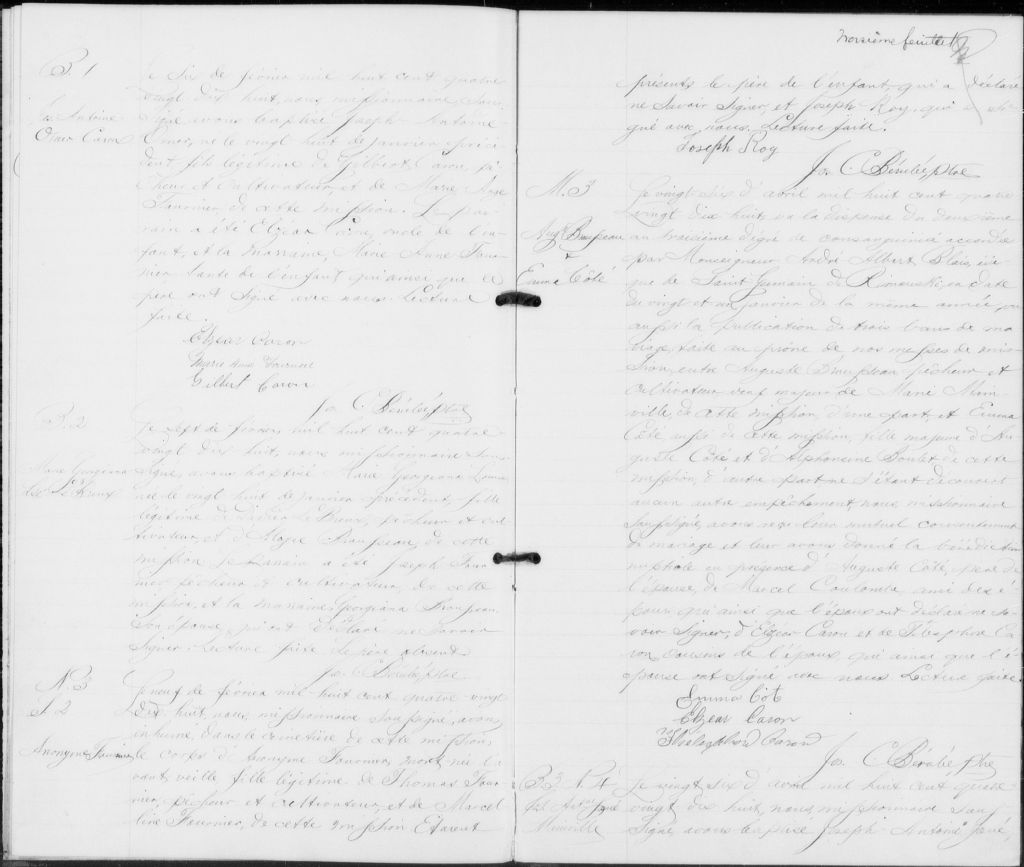 B. 1
Jos. Antoine
Omer Caron
Le Six de février mil huit cent quatre
vingt dix huit, nous missionnaire sous-
signé avons baptisé Joseph Antoine
Omer, né le vingt huit de janvier précé-
dent fils légitime de Gilbert Caron pê-
cheur et cultivateur et de Marie Anne
Fournier, de cette mission. Le par-
rain a été Elzéar Caron, oncle de l'en-
fant, et la marraine, Marie Anne Four-
nier tante de l'enfant qui ainsi que le
père ont signé avec nous. Lecture
faite.
Elzear Caron
Marie Anne Fournier
Gilbert Caron
Jos C. Bérubé ptre
B. 2
Marie Georgiana
Le sept de février, mil huit cent quatre
vingt dix huit, nous missionnaire sous-
signé, avons baptisé Marie Georgiana
née le vingt huit de janvier précédent, fille
légitime de LeBreux, pêcheur et cul-
tivateur et de Marie de cette
mission. Le parrain a été Joseph Four-
nier pêcheur et cultivateur, de cette
mission, et la marraine Georgiana
son épouse, qui ont déclaré ne savoir
signer. Lecture faite. Le père absent.
Jos. C. Bérubé ptre
N. 3
S. 2
Anonyme Fournier
Le neuf de février mil huit cent quatre vingt
dix huit, nous, missionnaire soussigné, avons
inhumé, dans le cimetière de cette mission,
le corps d'Anonyme Fournier, mort né
avant veille fille légitime de Thomas Four-
nier, pêcheur et cultivateur, et de Marcel-
line Fournier, de cette mission. Etaient
Troisième feuillet
présents le père de l'enfant, qui a déclaré
ne savoir signer, et Joseph Roy, qui a si-
gné avec nous. Lecture faite.
Joseph Roy
Jos. C. Bérubé ptre
M. 3
Emma Côté
Le vingt six d'avril mil huit cent quatre
vingt dix huit, vu la dispense du deuxième
au troisième dégré de consanguinité accordée
par Monseigneur André Albert Blais, évê-
que de Saint Germain de Rimouski, en date
du vingt et un janvier de la même année, vu
aussi la publication de trois bans de ma-
riage, faite au prône de nos messes de mis-
sion, entre Auguste pêcheur et
cultivateur veuf majeur de Marie Main-
ville de cette mission, d'une part, et Emma
Côté, aussi de cette mission, fille majeure d'Au-
guste Côté et d'Alphonsine Boulet de cette
mission, d'autre part ne s'étant découvert
aucun autre empêchement, nous missionnaire
soussigné, avons reçu leur mutuel consentement
de mariage et leur avons donné la bénédiction
nuptiale en présence d'Auguste Côté, père de
l'épouse, de Marcel Coulombe, ami de l'é-
poux, qui ainsi que l'époux ont déclaré ne sa-
voir signer, d'Elzéar Caron et de Télesphore Ca-
ron, cousins de l'époux qui ainsi que l'é-
pouse ont signé avec nous. Lecture faite.
Emma Coté
Elzear Caron
Caron
Jos C Bérubé, ptre
B. 3. N. 4
Jos. Antoine
Minville
Le vingt six d'avril mil huit cent quatre
vingt dix huit, nous, missionnaire sous-
signé, avons baptisé Joseph Antoine